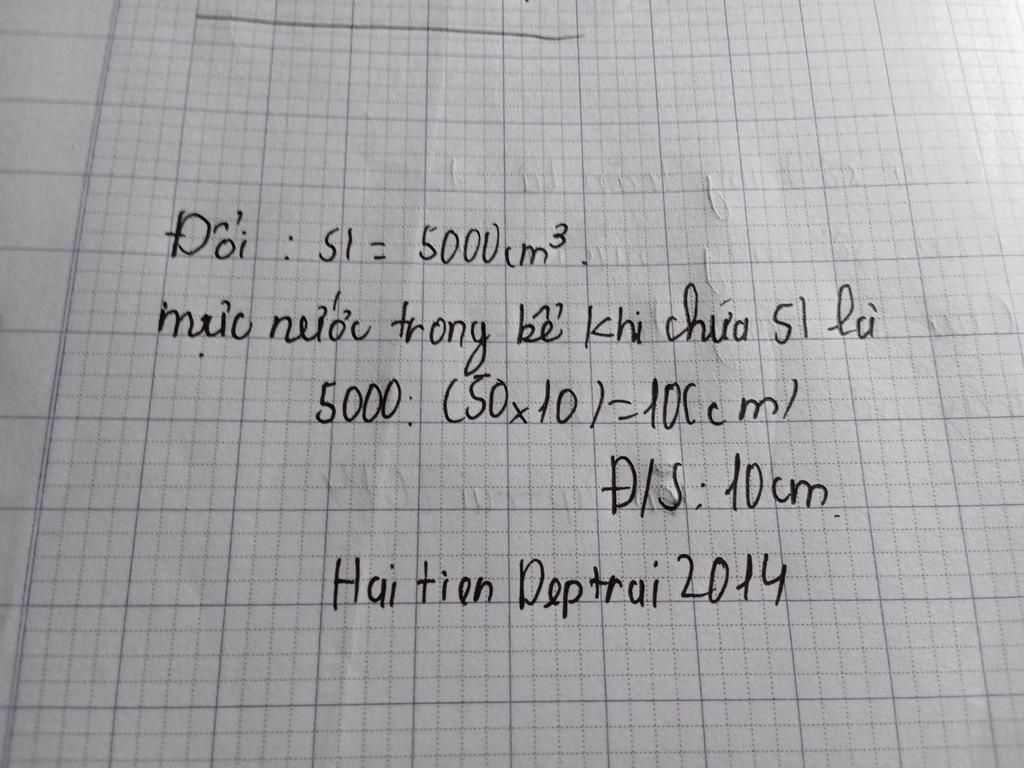 Đổi : 5l = 5000cm³.
mực nước trong bể khi chứa 5l là
5000: (50x10)=10(cm)
Đ/S: 10cm.
Hai tien Deptrai 2014